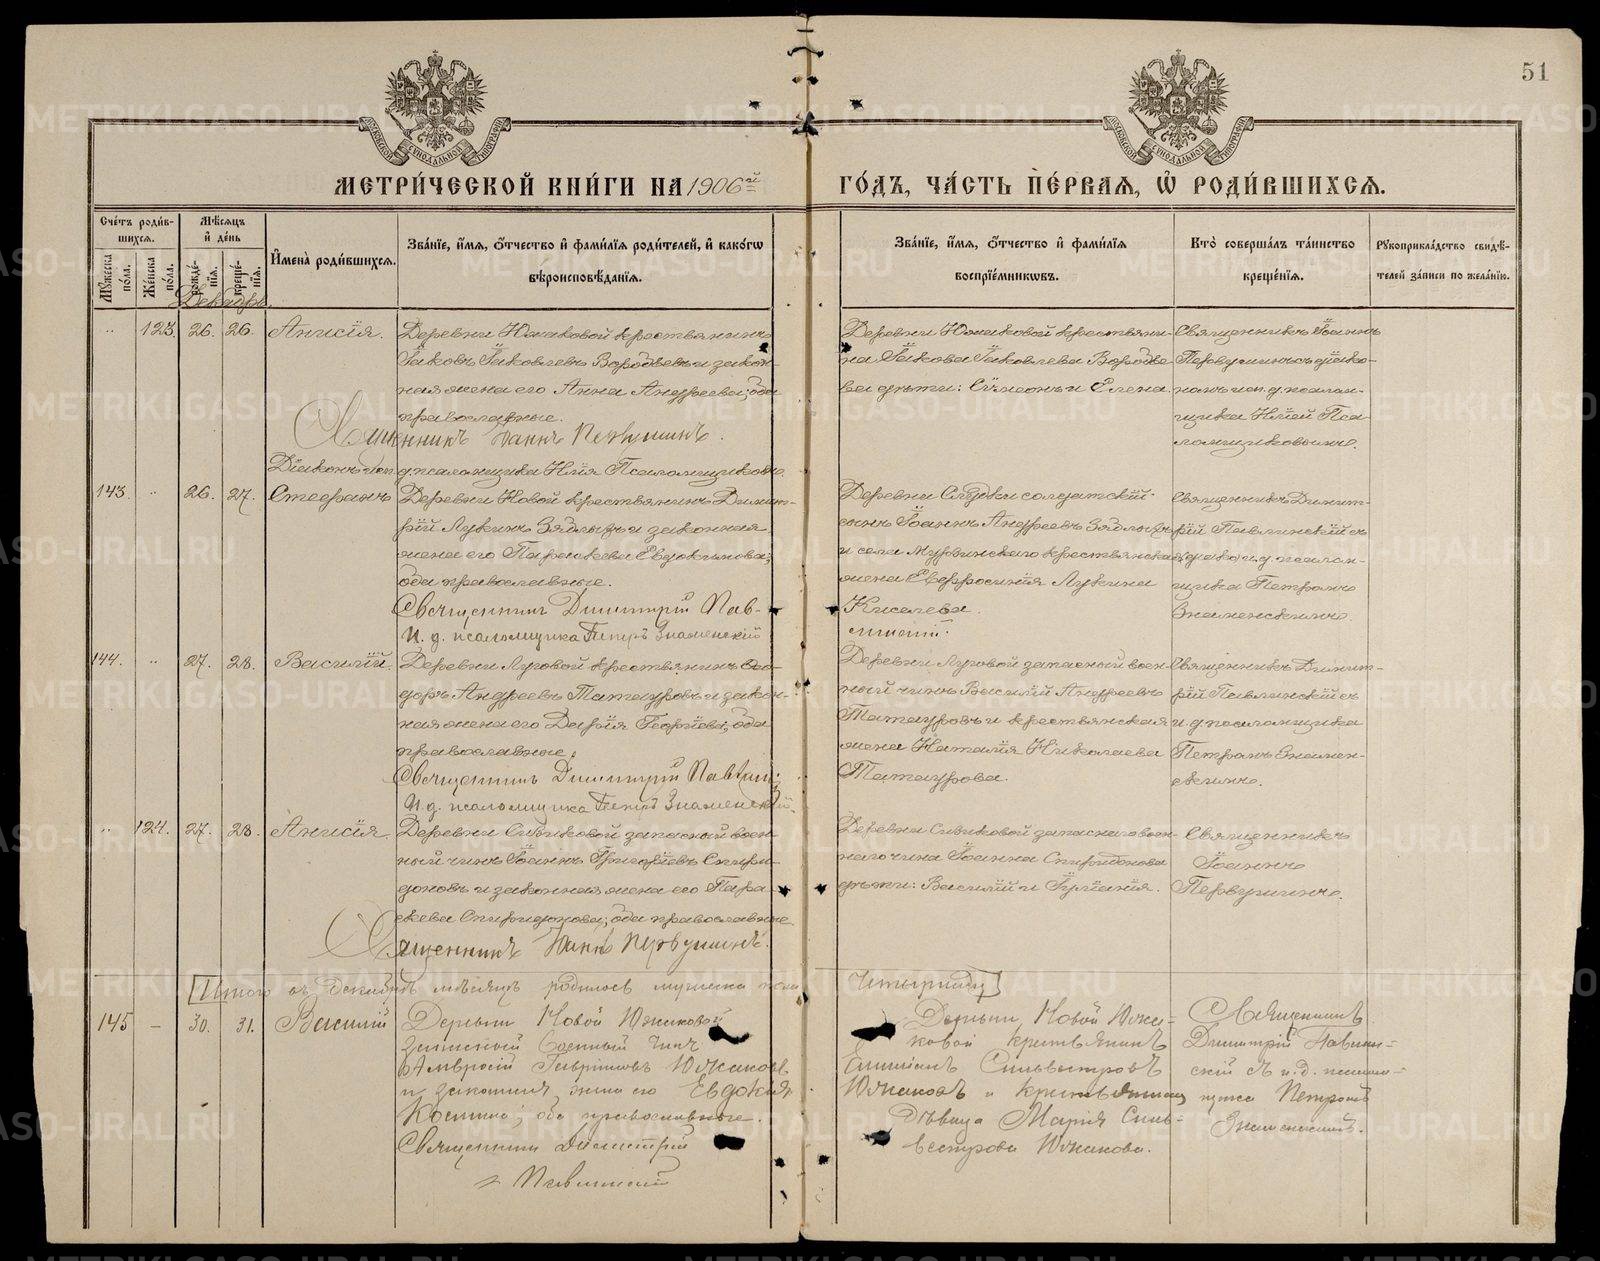 51
МЕТРИ́ЧЕСКОЙ КНИ́ГИ НА 1906й ГО́ДЪ, ЧА́СТЬ ПЕ́РВАЯ, Ѡ РОДИ́ВШИХСЯ.
Сче́тъ роди́в-
шихся.
Мѣ́сяцъ
и день
Мꙋжеска по́ла.
Же́нска по́ла.
рожде́-нїя.
креще́-нїя.
Имена̀ роди́вшихся.
Зва́нїе, и́мя, о́тчество и фами́лїя роди́телей, и како́гѡ
вѣроисповѣ́данїя.
Зва́нїе, и́мя, о́тчество и фами́лїя
воспрїе́мникѡвъ.
Кто̀ соверша́лъ та́инство
креще́нїя.
Рꙋкоприкла́дство свидѣ́-
телей за́писи по жела́нїю.
Декабрь
" 123. 26. 26. Анисія.
Деревни Южаковой крестьянинъ
Іаковъ Іаковлевъ Воробьевъ и закон-
ная жена его Анна Андреева; оба
православные.
Священникъ Іоаннъ Первушинъ.
Діаконъ и п. д. псаломщика Илія Псаломщиковъ
Деревни Южаковой крестьяни-
на Іакова Іаковлева Воробье-
ва дѣти: Сѵмеонъ и Елена.
Священникъ Іоаннъ
Первушинъ съ діако-
номъ и п. д. псалом-
щика Иліей Пса-
ломщиковымъ.
143. " 26. 27. Стефанъ
Деревни Новой крестьянинъ Димит-
рій Лукинъ Зядлыхъ и законная
жена его Параскева Евдокимова;
оба православные.
Священникъ Димитрій Пав-
И. д. псаломщика Петръ Знаменскій
Деревни Слудки солдатскій
сынъ Іоаннъ Андреевъ Зядлыхъ
и села Мурзинскаго крестьянская
жена Евфросинія Лукина
Киселева.
линскій.
Священникъ Димит-
рій Павлинскій съ
и. д. псалом-
щика Петромъ
Знаменскимъ.
144. " 27. 28. Василій.
Деревни Луговой крестьянинъ Ѳео-
доръ Андреевъ Татауровъ и закон-
ная жена его Дарія Георгіева; оба
православные.
Священникъ Димитрій Павлин:
И. д. псаломщика Петръ Знаменскій.
Деревни Луговой запасный воен-
ный чинъ Василій Андреевъ
Татауровъ и крестьянская
жена Наталія Николаева
Татаурова.
Священникъ Димит-
рій Павлинскій съ
и. д. псаломщика
Петромъ Знамен-
скимъ.
" 124. 27. 28. Анисія.
Деревни Сизиковой запасный воен-
ный чинъ Іоаннъ Григоріевъ Спири-
доновъ и законная жена его Пара-
скева Спиридонова; оба православные
Священникъ Іоаннъ Первушинъ.
Деревни Сизиковой запаснаго воен-
наго чина Іоанна Спиридонова
дѣти: Василій и Іуліанія.
Священникъ
Іоаннъ
Первушинъ.
[Итого въ Декабрѣ мѣсяцѣ родилось мужеска пола
145 – 30. 31. Василій
Деревни Новой Южаковой
запасный военный чинъ
Амвросій Гавриловъ Южаковъ
и законная жена его Евдокія
Космина; оба православные.
Священникъ Димитрій
Павлинскій
Деревни Новой Южа-
ковой крестьянинъ
Сильвестровъ
Южаковъ и крестьянская
дѣвица Марія Силь-
вестрова Южакова.
Священникъ
Димитрій Павлин-
скій съ и. д. псалом-
щика Петромъ
Знаменскимъ.
METRIKI.GASO-URAL.RU